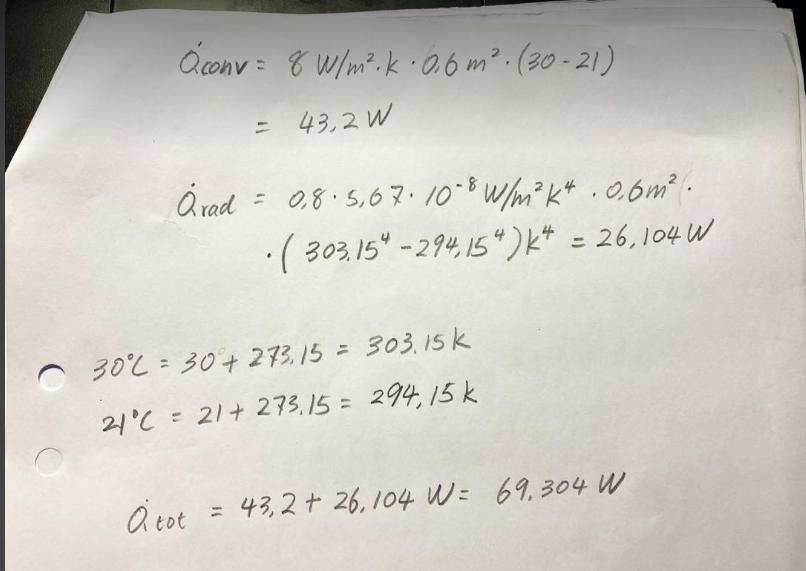 Q̇conv = 8 W/m².k · 0,6 m² · (30 - 21)
= 43,2 W
Q̇rad = 0,8 · 5,67 · 10⁻⁸ W/m²k⁴ · 0,6m² ·
· ( 303,15⁴ - 294,15⁴) k⁴ = 26,104 W
30°C = 30 + 273,15 = 303.15 k
21°C = 21 + 273.15 = 294,15 k
Q̇tot = 43,2 + 26,104 W = 69,304 W